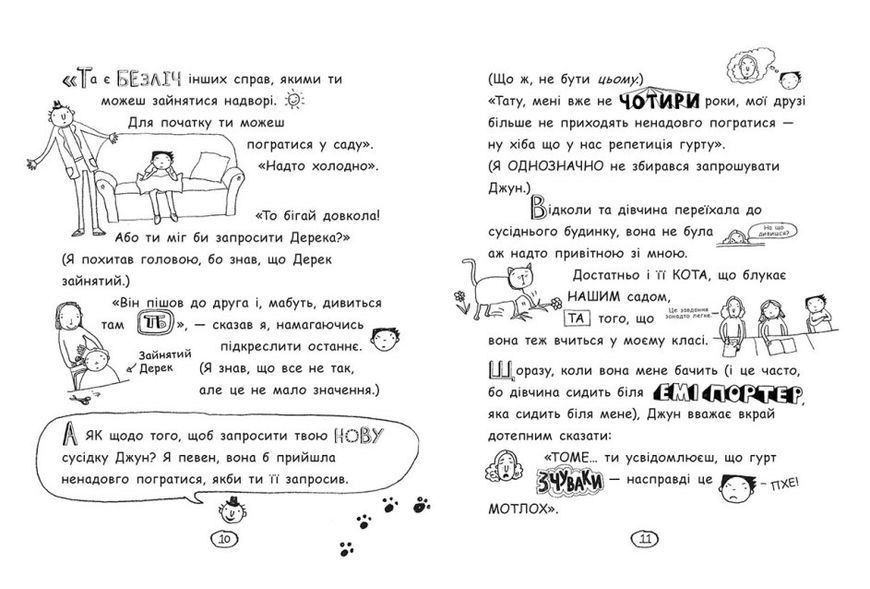 «Та є БЕЗЛІЧ інших справ, якими ти
можеш зайнятися надворі.
Для початку ти можеш
погратися у саду».
«Надто холодно».
«То бігай довкола!
Або ти міг би запросити Дерека?»
(Я похитав головою, бо знав, що Дерек
зайнятий.)
«Він пішов до друга і, мабуть, дивиться
там ТБ», — сказав я, намагаючись
підкреслити останнє.
Зайнятий
Дерек
(Я знав, що все не так,
але це не мало значення.)
А ЯК щодо того, щоб запросити твою НОВУ
сусідку Джун? Я певен, вона б прийшла
ненадовго погратися, якби ти її запросив.
10
(Що ж, не бути цьому.)
«Тату, мені вже не ЧОТИРИ роки, мої друзі
більше не приходять ненадовго погратися —
ну хіба що у нас репетиція гурту».
(Я ОДНОЗНАЧНО не збирався запрошувати
Джун.)
Відколи та дівчина переїхала до
сусіднього будинку, вона не була
На що
дивишся?
аж надто привітною зі мною.
Достатньо і її КОТА, що блукає
НАШИМ садом,
ТА того, що
Це завдання
занадто легке.
вона теж вчиться у моєму класі.
Щоразу, коли вона мене бачить (і це часто,
бо дівчина сидить біля ЕМІ ПОРТЕР,
яка сидить біля мене), Джун вважає вкрай
дотепним сказати:
«ТОМЕ... ти усвідомлюєш, що гурт
ЗЧУВАКИ — насправді це
– ПХЕ!
МОТЛОХ».
11